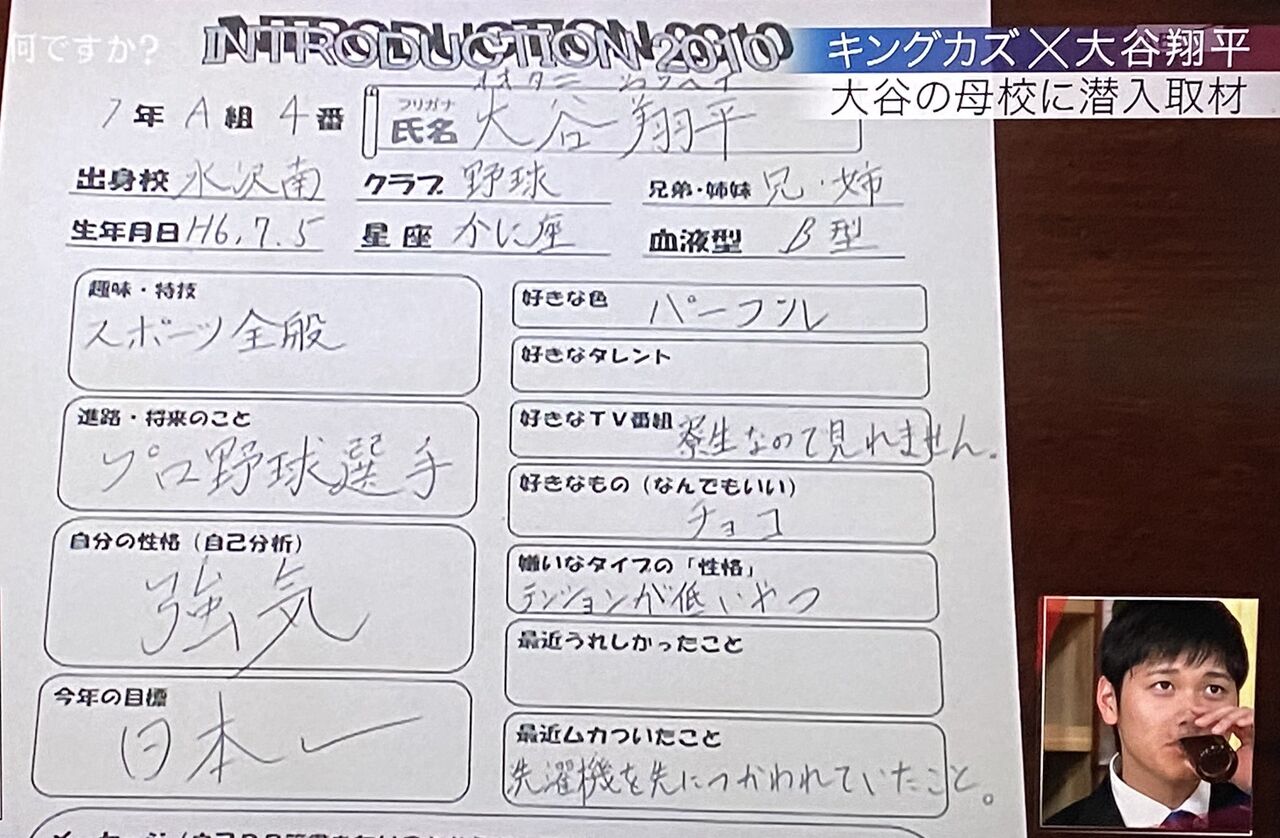 何ですか?
INTRODUCTION 2010
キングカズ×大谷翔平
大谷の母校に潜入取材
1年 A組 4番
フリガナ オオタニ ショウヘイ
氏名 大谷 翔平
出身校 水沢南 クラブ 野球 兄弟・姉妹 兄・姉
生年月日 H6.7.5 星座 かに座 血液型 B型
趣味・特技
スポーツ全般
進路・将来のこと
プロ野球選手
自分の性格(自己分析)
強気
今年の目標
日本一
好きな色 パープル
好きなタレント
好きなTV番組 寮生なので見れません.
好きなもの(なんでもいい)
チョコ
嫌いなタイプの「性格」
テンションが低いやつ
最近うれしかったこと
最近ムカついたこと
洗濯機を先につかわれていたこと。